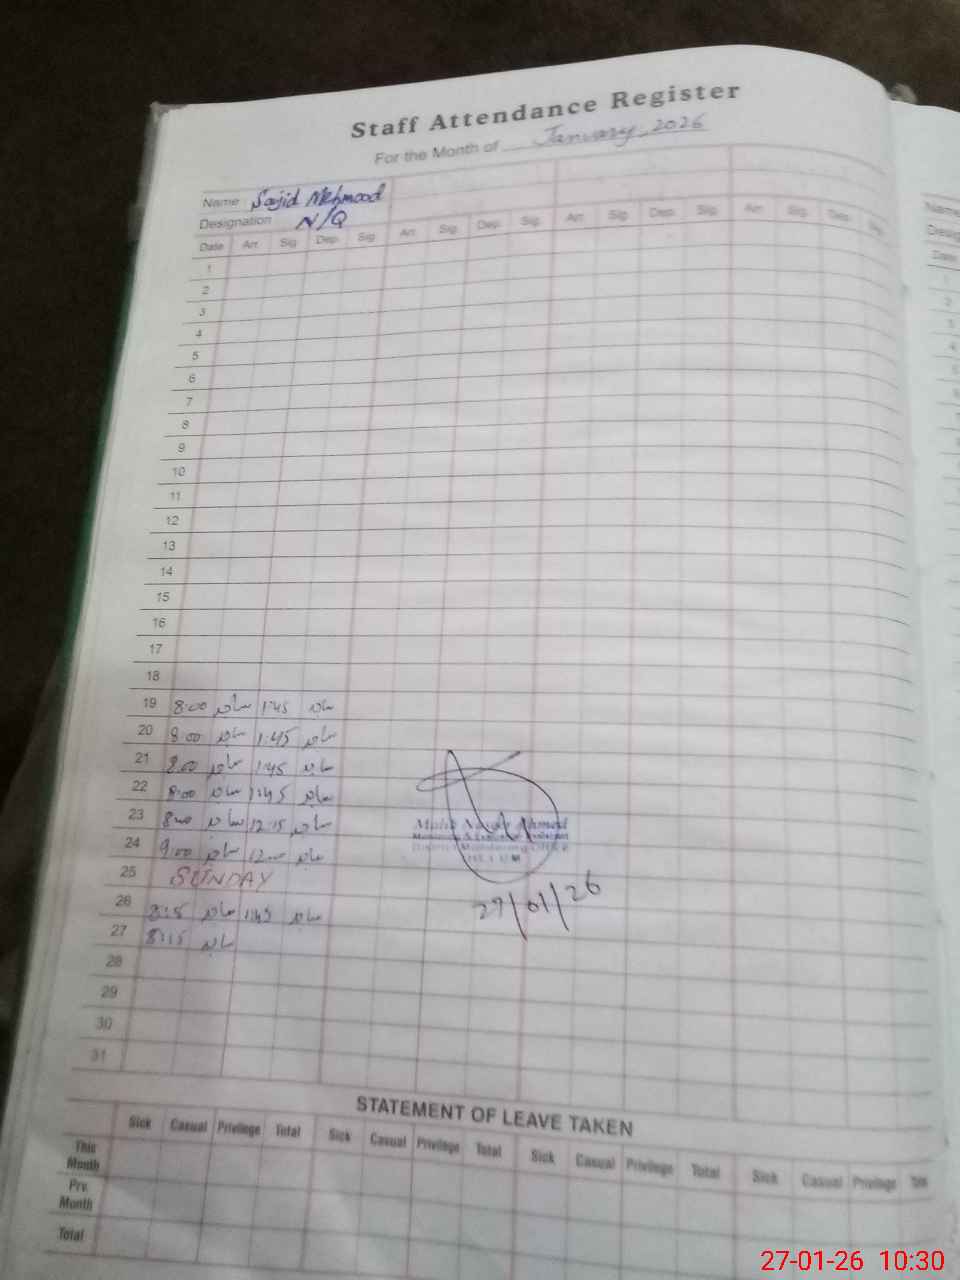 Staff Attendance Register
For the Month of January, 2026
Name Sajid Mehmood
Designation N/Q
Date Arr. Sig. Dep. Sig. Arr. Sig. Dep. Sig. Arr. Sig. Dep. Sig. Arr. Sig. Dep.
1
2
3
4
5
6
7
8
9
10
11
12
13
14
15
16
17
18
19 8:00 ساجد 1:45 ساجد
20 8:00 ساجد 1:45 ساجد
21 8:00 ساجد 1:45 ساجد
22 8:00 ساجد 1:45 ساجد
23 8:00 ساجد 12:15 ساجد
24 9:00 ساجد 12:00 ساجد
25 SUNDAY
26 8:15 ساجد 1:45 ساجد
27 8:15 ساجد
28
29
30
31
Ahmed
27/01/26
STATEMENT OF LEAVE TAKEN
Sick Casual Privilege Total Sick Casual Privilege Total Sick Casual Privilege Total Sick Casual Privilege Total
This Month
Prv. Month
Total
Name
Date
27-01-26 10:30